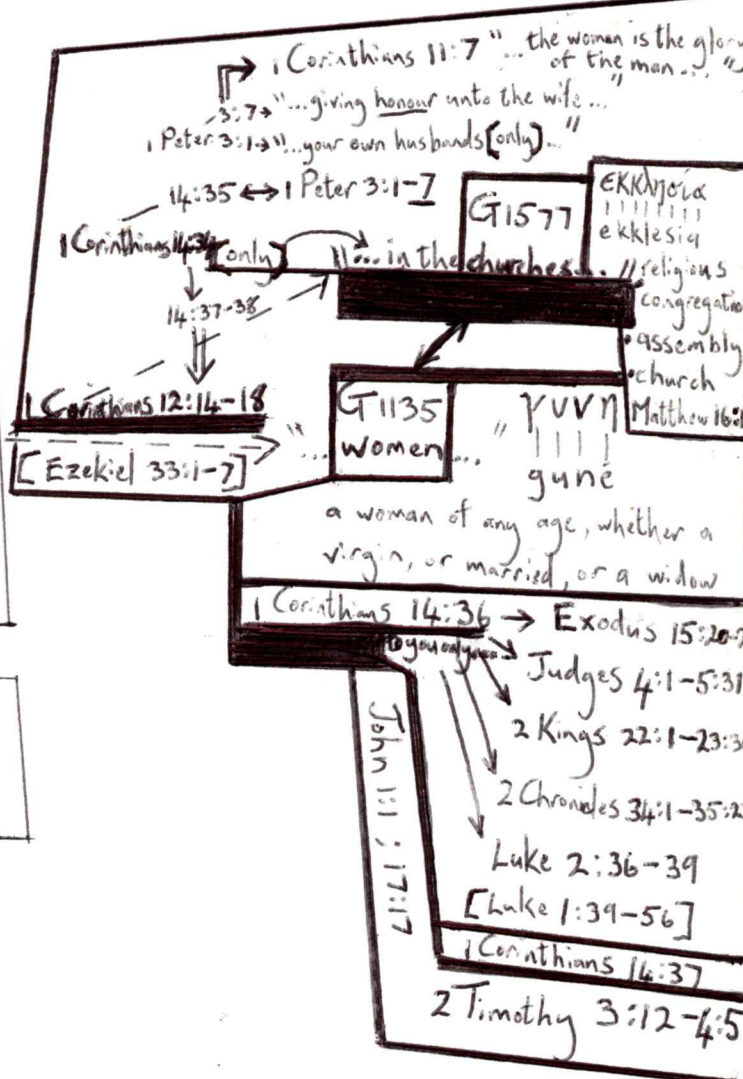 1 Corinthians 11:7 "... the woman is the glory
of the man..."
3:7→ "...giving honour unto the wife..."
1 Peter 3:1→ "...your own husbands [only]..."
14:35 ↔ 1 Peter 3:1-7
1 Corinthians 14:34
[only] "... in the churches..."
G1577
εκκλησία
ekklēsia
religious
congregatio
• assembly
• church
Matthew 16:1
14:37-38
1 Corinthians 12:14-18
[Ezekiel 33:1-7]
G1135
"... women ..."
γυνη
gunē
a woman of any age, whether a
virgin, or married, or a widow
1 Corinthians 14:36 → Exodus 15:20-2
you only
Judges 4:1-5:31
2 Kings 22:1-23:3
2 Chronicles 34:1-35:2
Luke 2:36-39
[Luke 1:39-56]
John 1:1; 17:17
1 Corinthians 14:37
2 Timothy 3:12-4:5